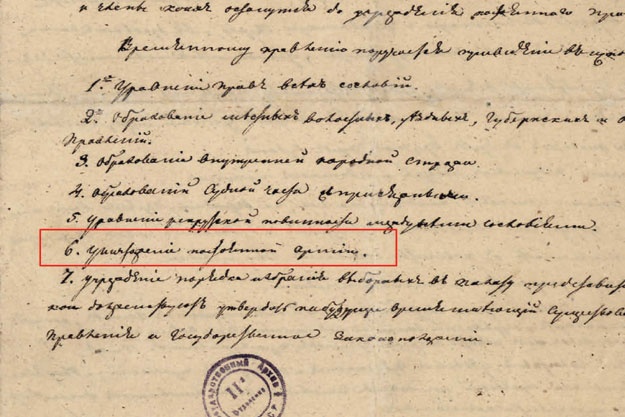 и члены коихъ до учрежденія постояннаго Пра
Временному правленію поручается приведеніе въ
1.ᵉ Уравненіе правъ всѣхъ сословій.
2.ᵉ Образованіе мѣстныхъ Волостныхъ, Уѣздныхъ, Губернскихъ и О
Правленій.
3. Образованіе внутренней народной стражи.
4. Образованіе Судной части съ присяжными.
5. Уравненіе рекрутской повинности между сословіями.
6. Уничтоженіе постоянной арміи.
7. Учрежденіе порядка избранія выборныхъ въ палату представи
кои долженствуютъ утвердить на будущее время имѣющій существова
Правленія и Государственное Законоположеніе.
Архив
II